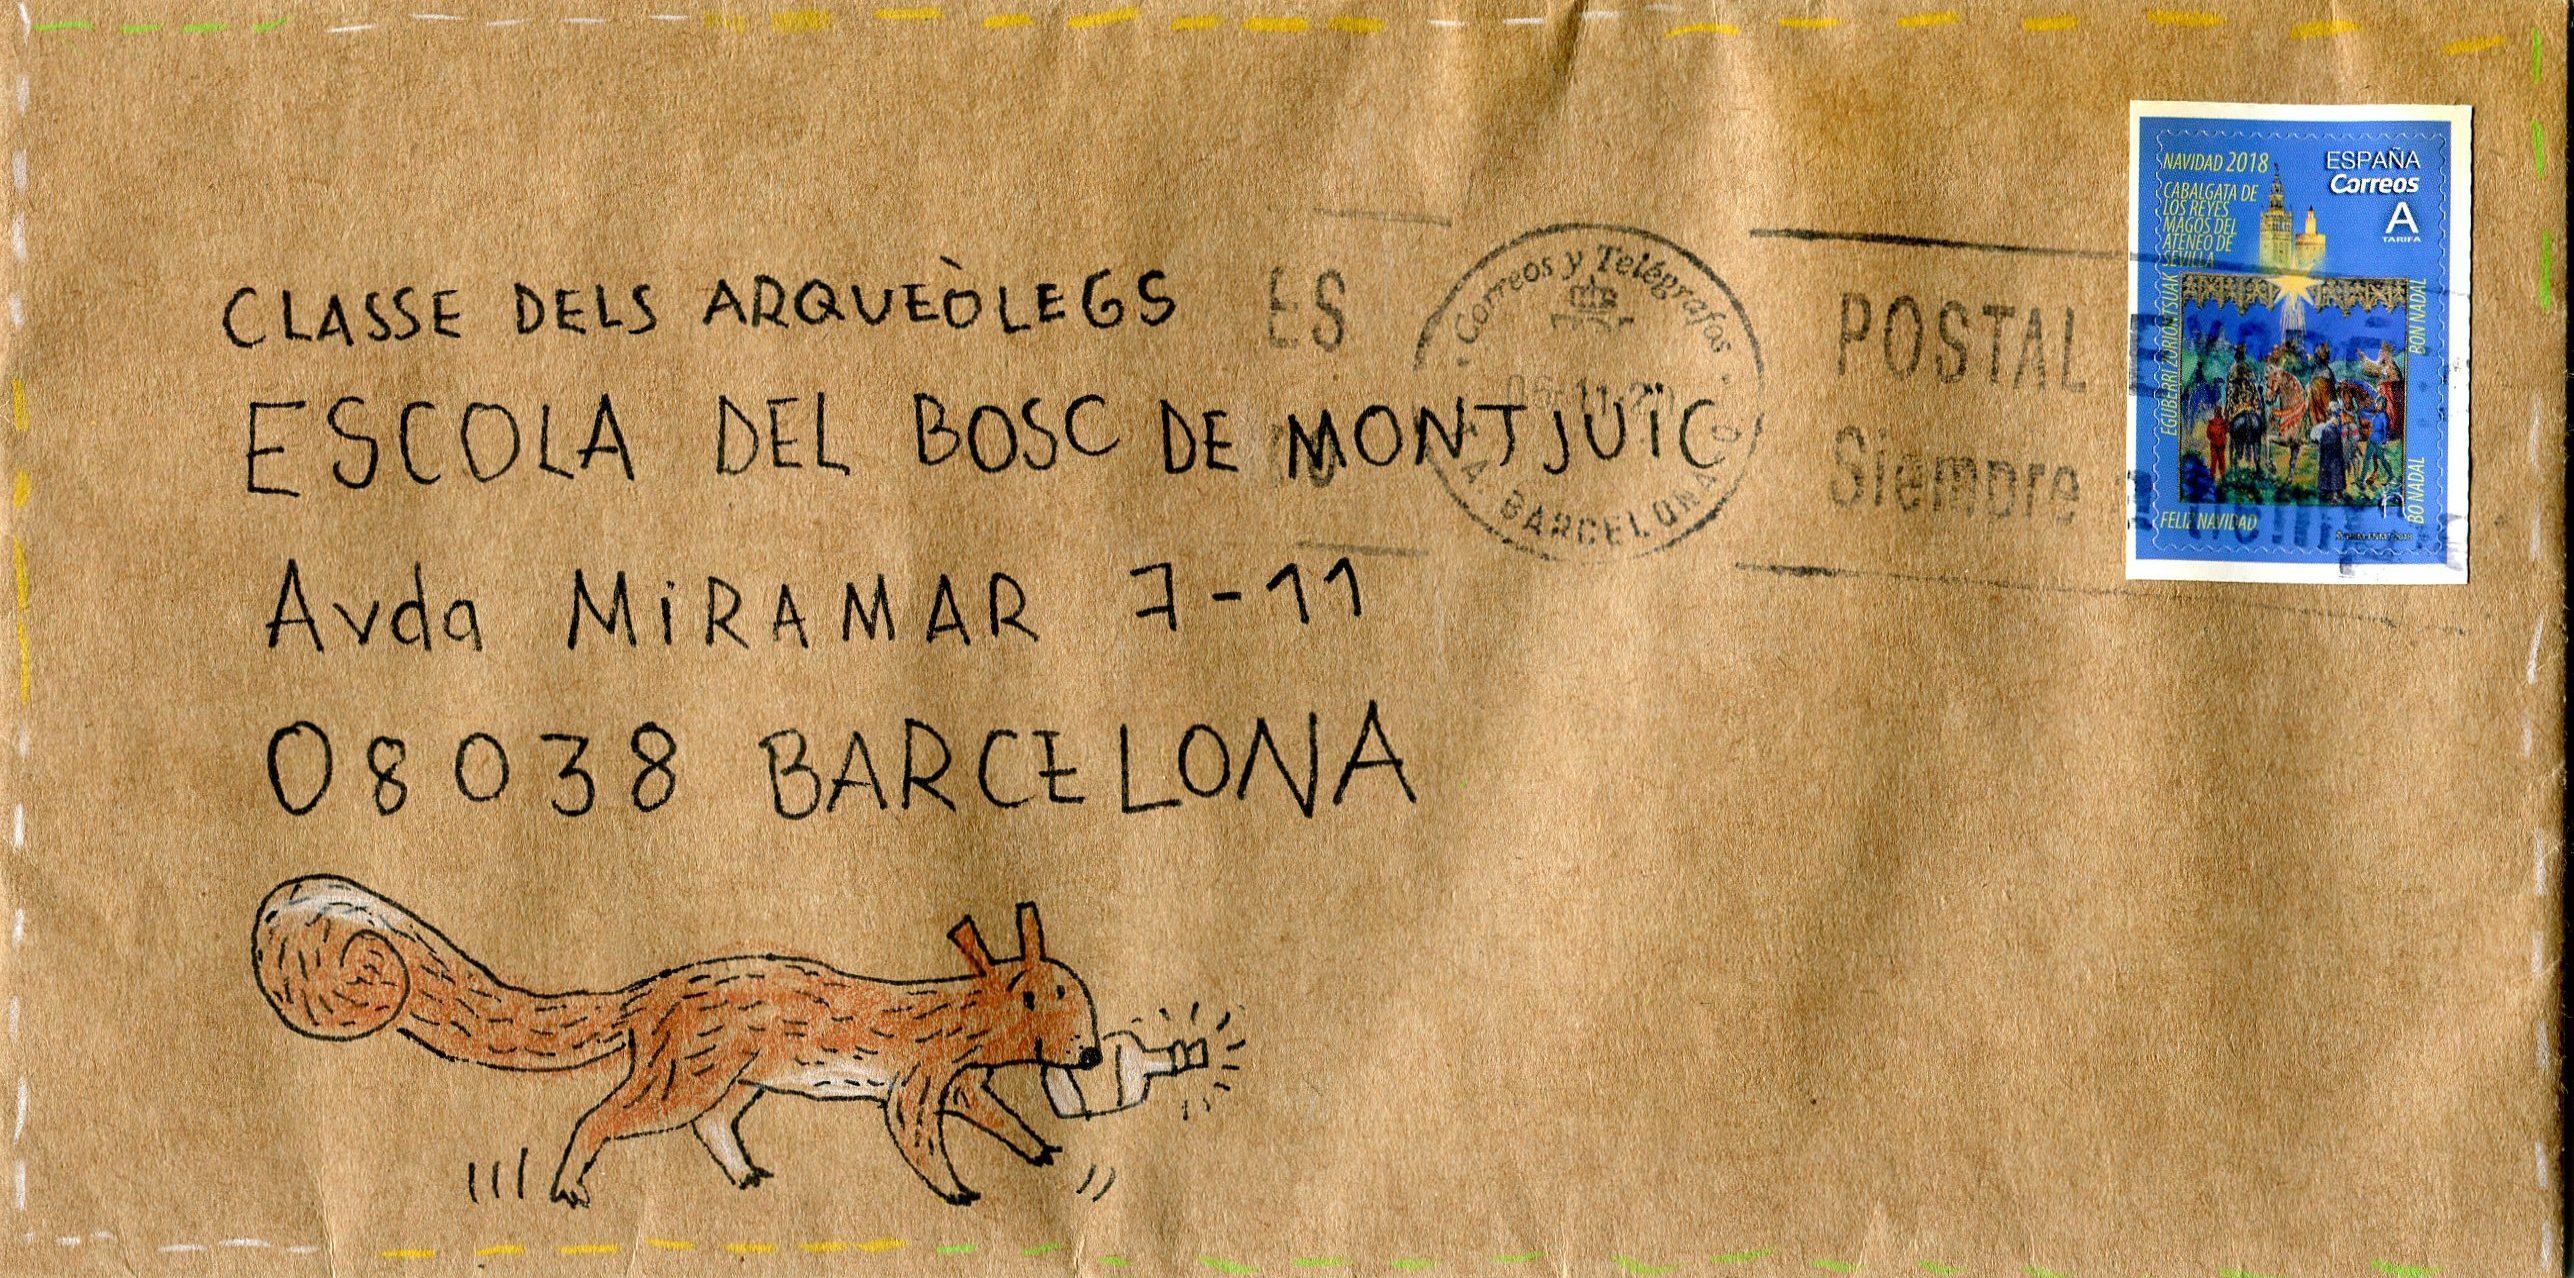 CLASSE DELS ARQUEÒLEGS
ESCOLA DEL BOSC DE MONTJUÏC
Avda MiRAMAR 7-11
08038 BARCELONA
ES
Correos y Telégrafos
BARCELONA
POSTAL
Siempre
NAVIDAD 2018
CABALGATA DE
LOS REYES
MAGOS DEL
ATENEO DE
SEVILLA
ESPAÑA
Correos
A
TARIFA
EGUBERRI ZORIONTSUAK
BON NADAL
BO NADAL
FELIZ NAVIDAD